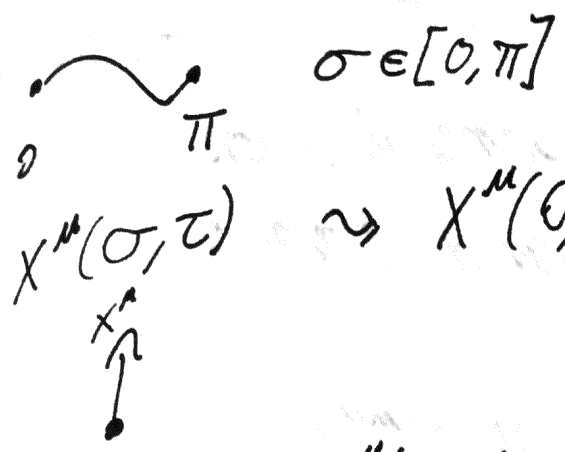 σ ∈ [0, π]
0 π
X^μ(σ, τ) ⇝ X^μ(
X^μ